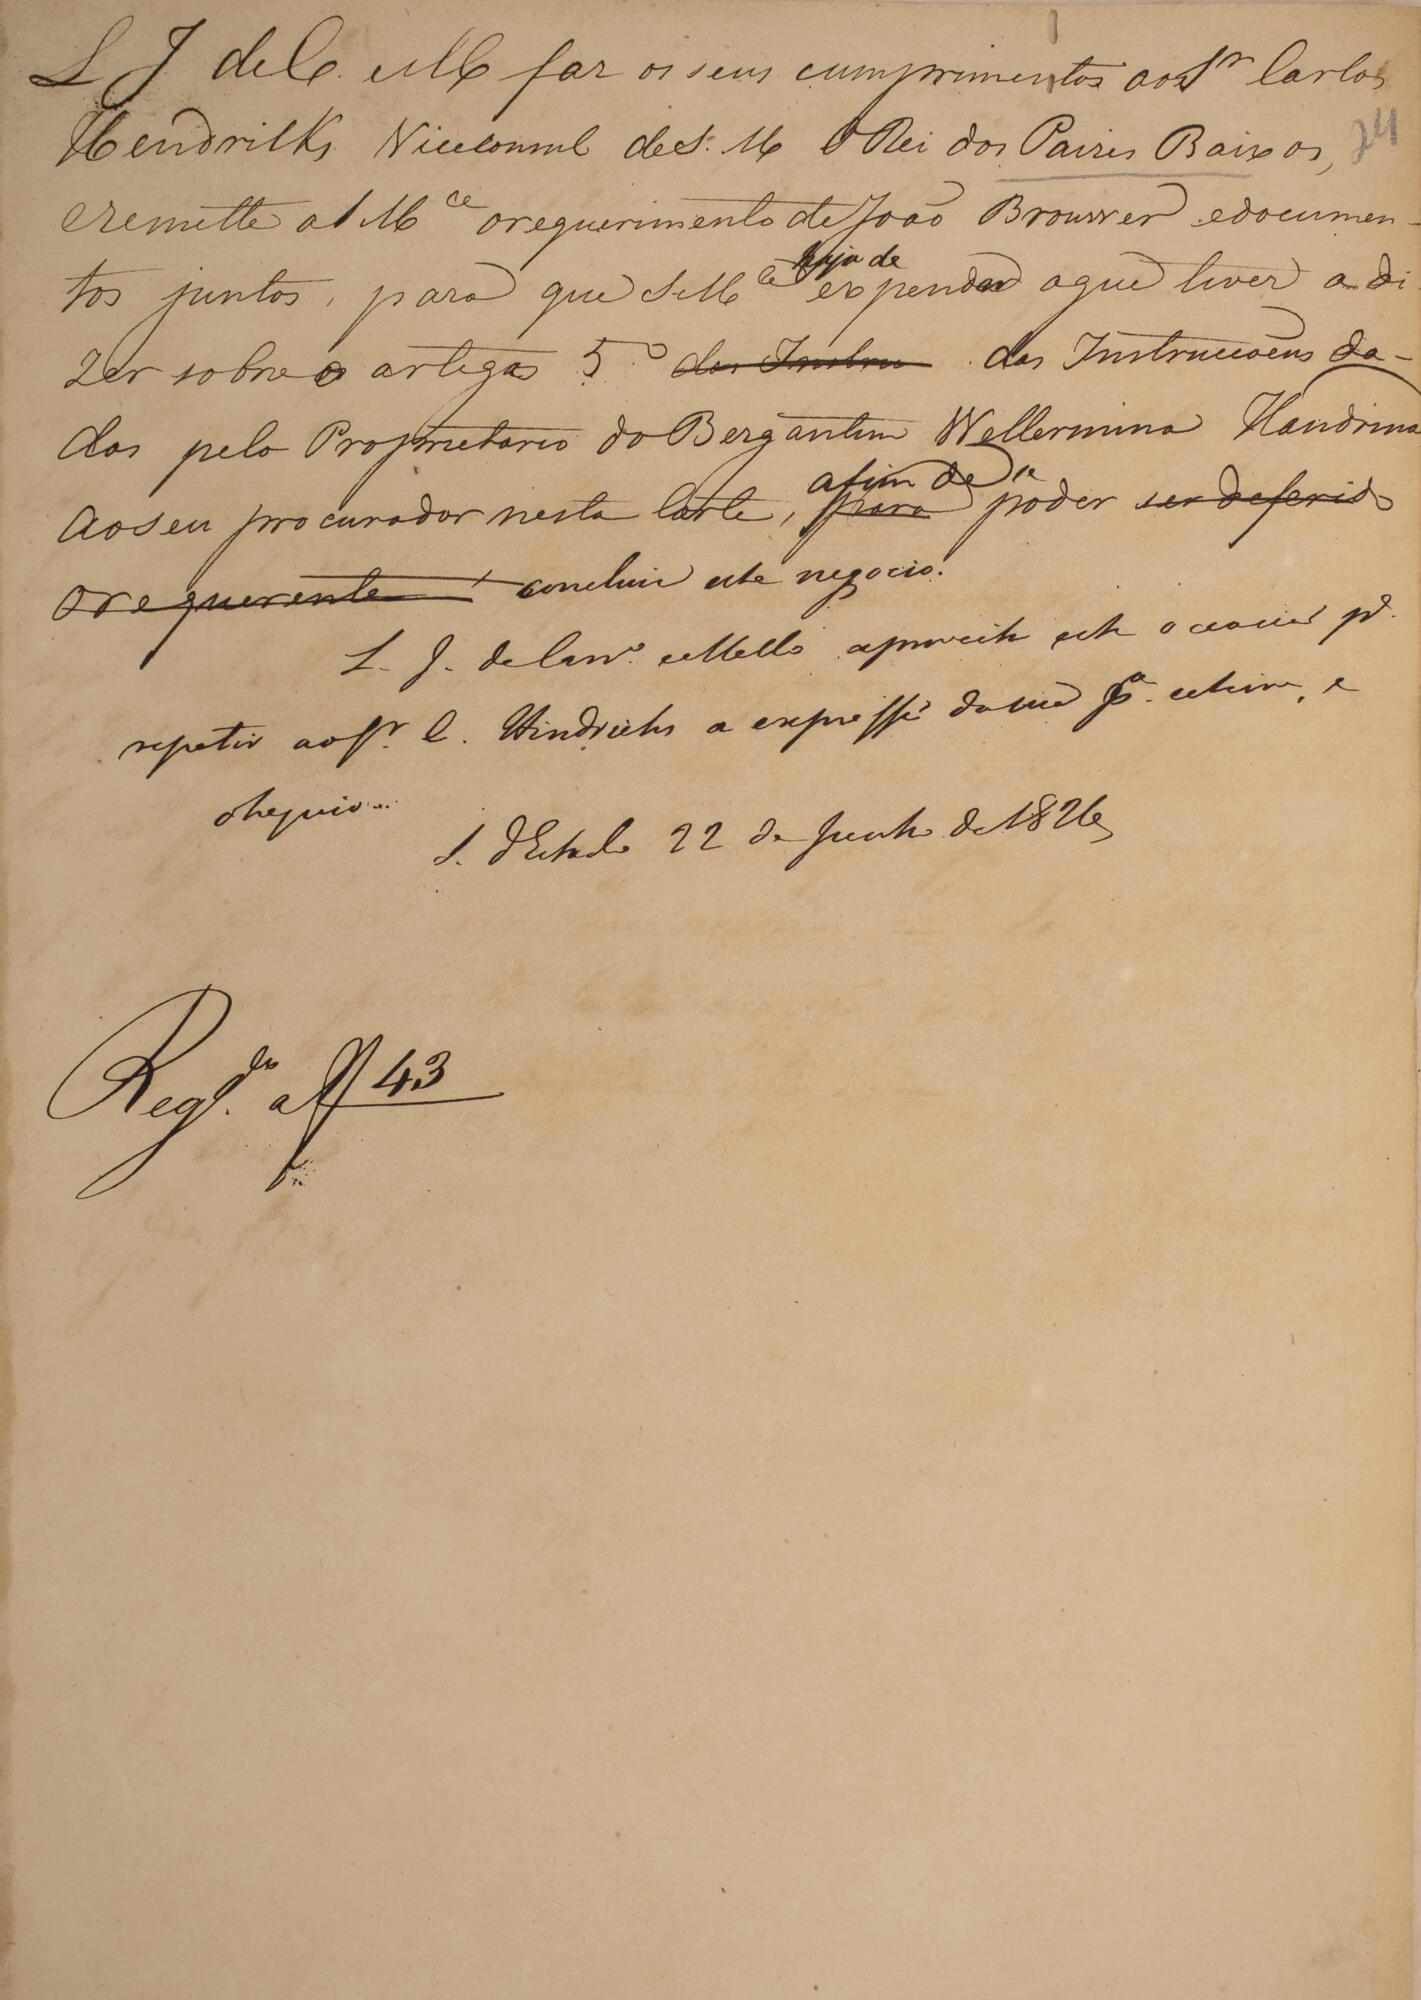 L J de C. e M faz os seus cumprimentos ao Sr Carlos
24
Hendrilks Viceconsul de S. M O Rei dos Paizes Baixos,
e remette a S Mce o requerimento de João Brouwer e documen-
tos juntos, para que S Mce haja de expender o que tiver a di-
zer sobre o artigo 5º dos Instru das Instruccoens da-
das pelo Proprietario do Bergantim Wellermina Handrina
ao seu procurador nesta Corte, para afim de se poder ser deferido
o requerente concluir este negocio.
L. J. de Carvo. e Mello aproveita esta occasião pa.
repetir ao Sr. C. Hindrichs a expressão da sua pa. estima, e
obsequio
S. d'Estado 22 de Junho de 1826
Regdo. a f 43